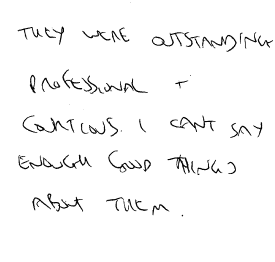 THEY WERE OUTSTANDING
PROFESSIONAL +
COURTEOUS. I CANT SAY
ENOUGH GOOD THINGS
ABOUT THEM.